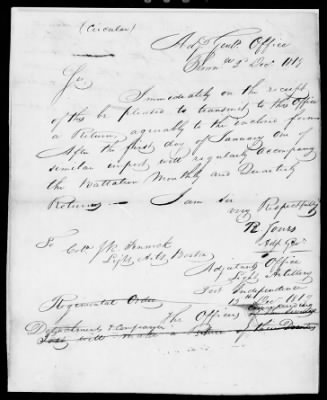 (Circular)
Adjt Genls Office
2d Decr 1818
Sir,
Immediately on the receipt
of this be pleased to transmit to this Office
a Return, agreeably to the enclosed form
After the first day of January one of
similar import will regularly accompany
the Battalion Monthly and Quarterly
Returns. — I am Sir
very Respectfully
Yours
Adj Gen
To
Col J R Fenwick
Light Arty, Boston
Adjutants Office
Light Artillery
Fort Independence
12th Decr 1818
Regimental Order
The Officers
Detachments & Companies
will make a of their